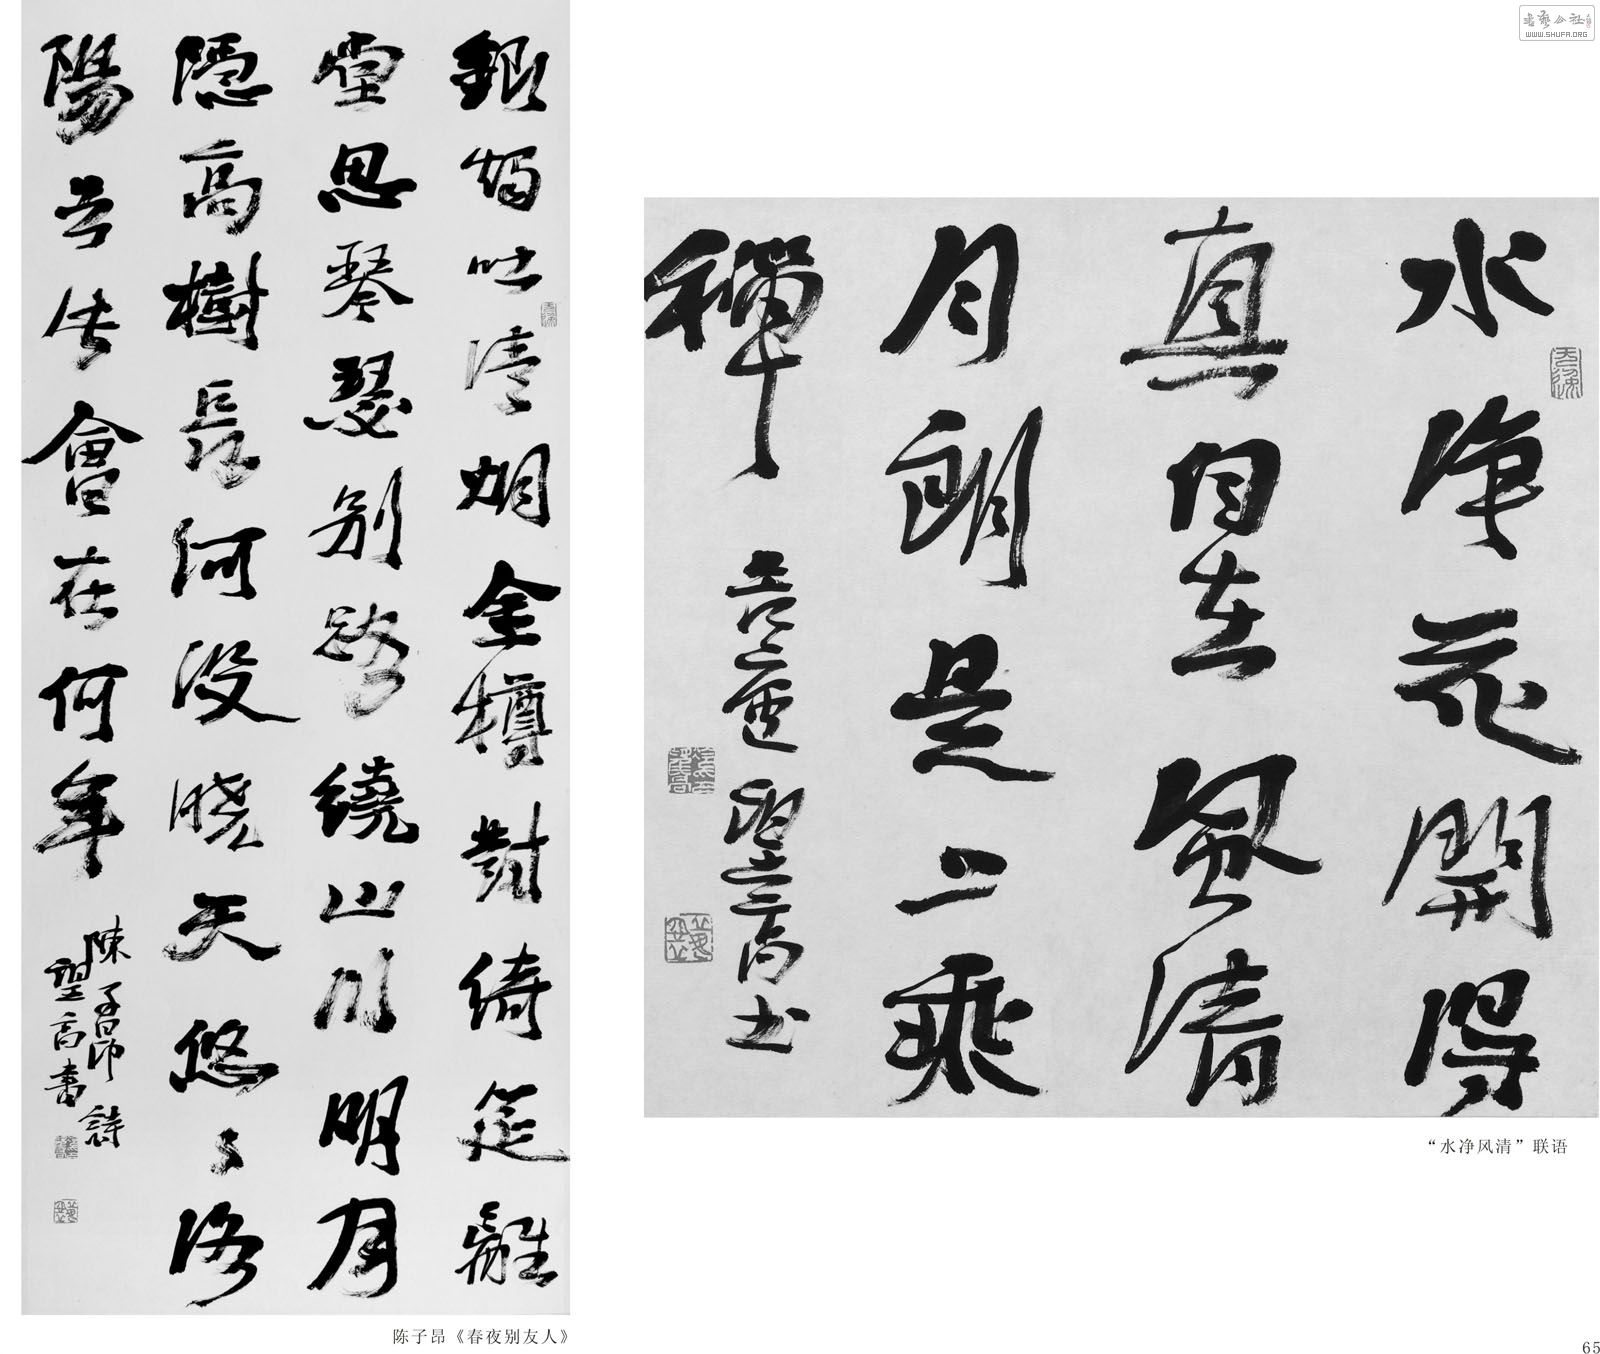 銀燭吐清烟金樽對綺筵離
堂思琴瑟別路繞山川明月
隱高樹長河沒曉天悠〻洛
陽去此會在何年
陳子昂詩
望高書
陈子昂《春夜别友人》
水净花開得
真自在風清
月朗是上乘
禪
“水净风清”联语
WWW.SHUFA.ORG
65